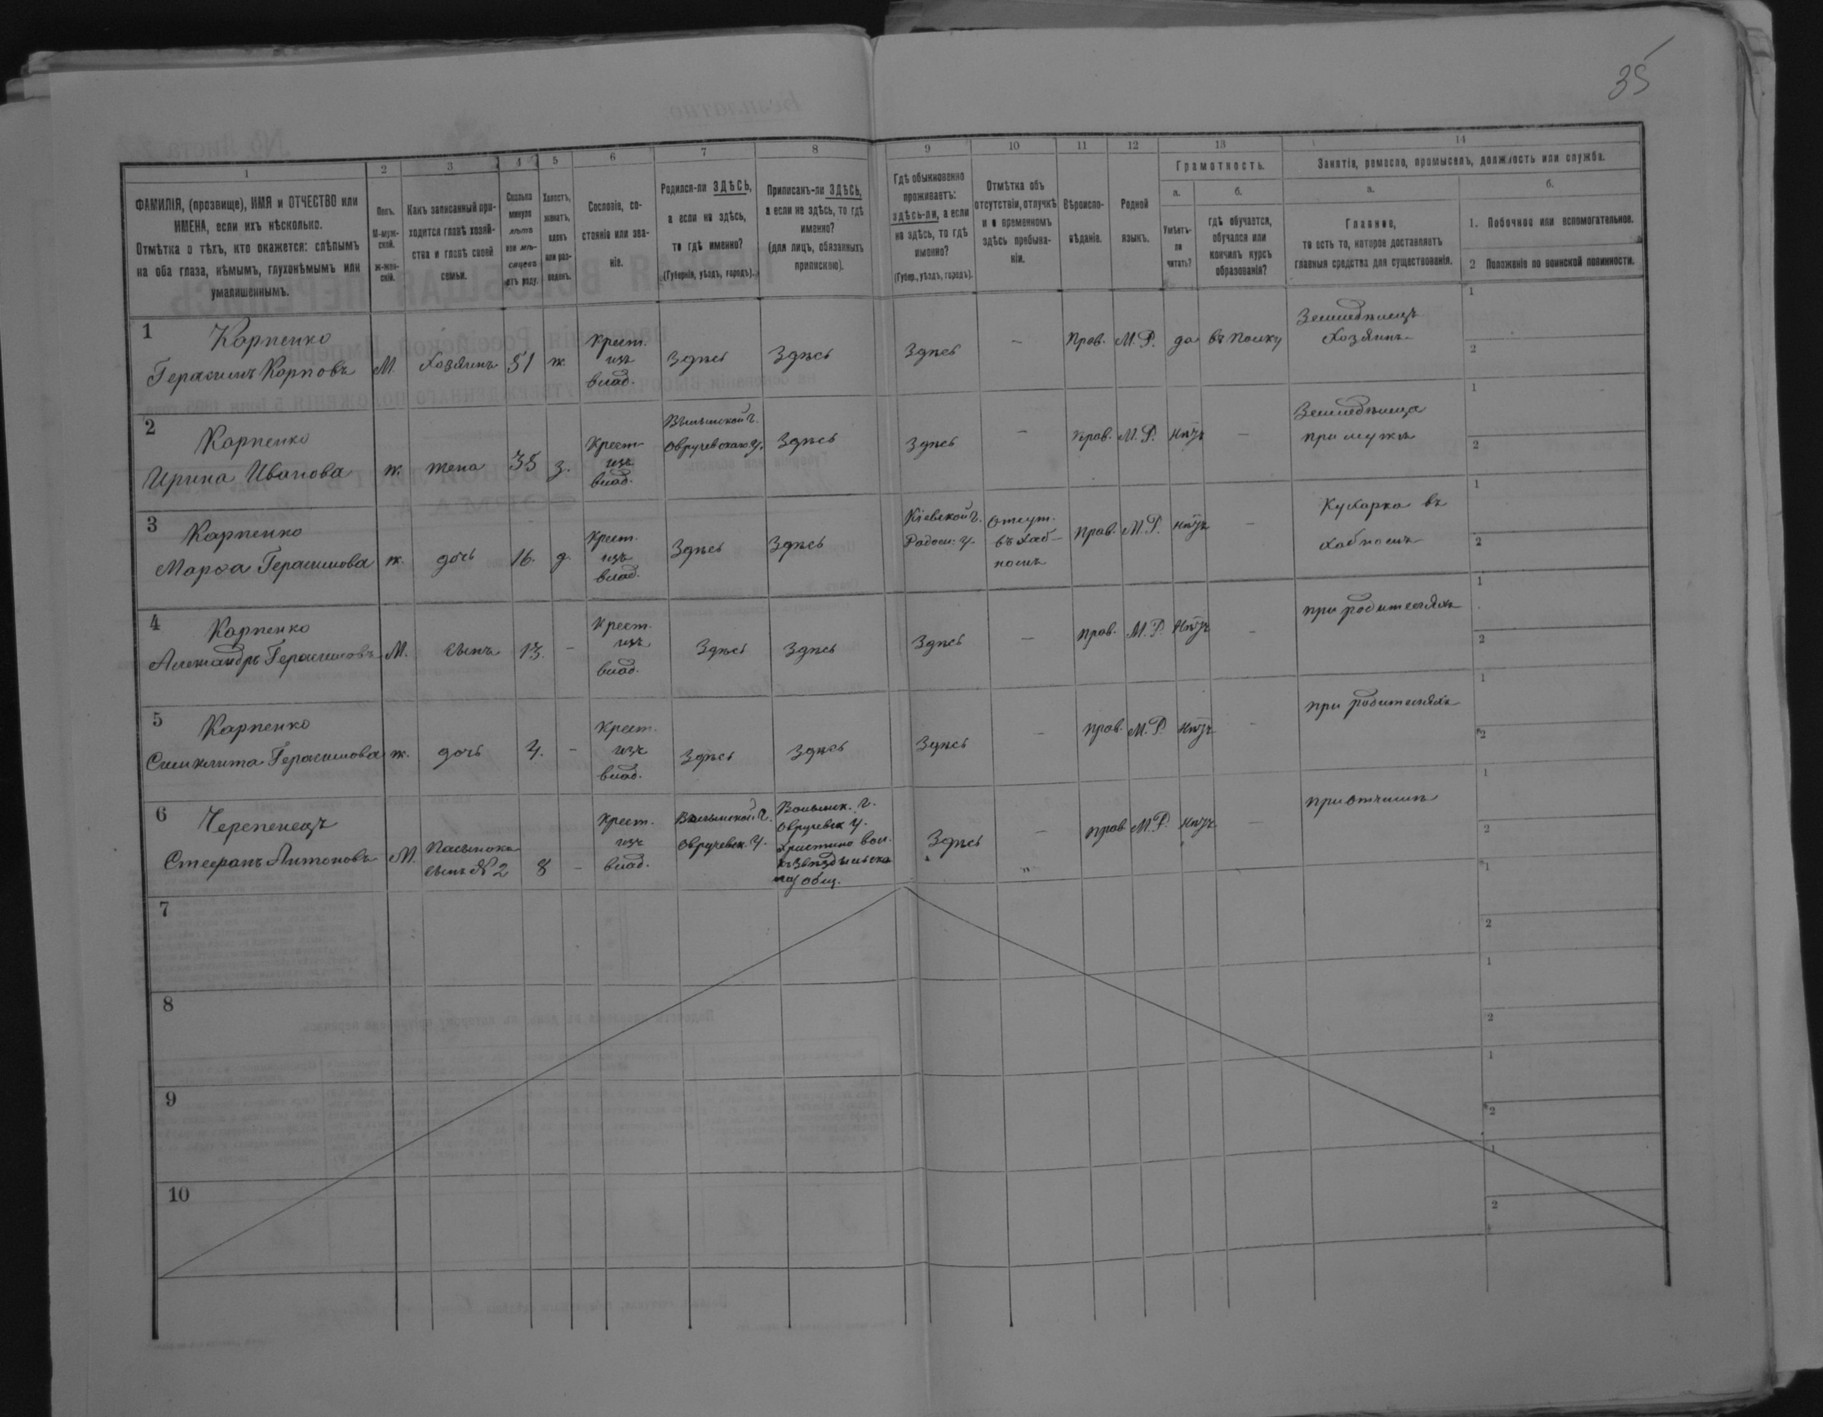 35
1
2
3
4
5
6
7
8
9
10
11
12
13
14
ФАМИЛІЯ, (прозвище), ИМЯ и ОТЧЕСТВО или
ИМЕНА, если ихъ нѣсколько.
Отмѣтка о тѣхъ, кто окажется: слѣпымъ
на оба глаза, нѣмымъ, глухонѣмымъ или
умалишеннымъ.
Полъ.
М-муж-
ской.
Ж-жен-
скій.
Какъ записанный при-
ходится главѣ хозяй-
ства и главѣ своей
семьи.
Сколько
минуло
лѣтъ
или мѣ-
сяцевъ
отъ роду.
Холостъ,
женатъ,
вдовъ
или раз-
веденъ.
Сословіе, со-
стояніе или зва-
ніе.
Родился-ли ЗДѢСЬ,
а если не здѣсь,
то гдѣ именно?
(Губернія, уѣздъ, городъ).
Приписанъ-ли ЗДѢСЬ,
а если не здѣсь, то гдѣ
именно?
(для лицъ, обязанныхъ
припискою).
Гдѣ обыкновенно
проживаетъ:
здѣсь-ли, а если
не здѣсь, то гдѣ
именно?
(Губер., уѣздъ, городъ).
Отмѣтка объ
отсутствіи, отлучкѣ
и о временномъ
здѣсь пребыва-
ніи.
Вѣроиспо-
вѣданіе.
Родной
языкъ.
Грамотность.
а.
б.
Умѣетъ-
ли
читать?
гдѣ обучается,
обучался или
кончилъ курсъ
образованія?
Занятіе, ремесло, промыселъ, должность или служба.
а.
б.
Главное,
то есть то, которое доставляетъ
главныя средства для существованія.
1. Побочное или вспомогательное.
2 Положеніе по воинской повинности.
1 Карпенко
Герасимъ Карповъ М. Хозяинъ 51 ж. Крест. изъ влад. Здѣсь Здѣсь Здѣсь — Прав. М.Р. да въ полку Земледѣлецъ Хозяинъ 1 2
2 Карпенко
Ирина Иванова ж. жена 35 з. Крест. изъ влад. Волынской г. Овручевскаго у. Здѣсь Здѣсь — Прав. М.Р. нѣтъ — Земледѣлица при мужѣ 1 2
3 Карпенко
Марѳа Герасимова ж. дочь 16. д. Крест. изъ влад. Здѣсь Здѣсь Кіевской г. Радом. у. Отсут. въ Хаб- номъ Прав. М.Р. нѣтъ — Кухарка въ Хабномъ 1 2
4 Карпенко
Александръ Герасимовъ М. сынъ 13. — Крест. изъ влад. Здѣсь Здѣсь Здѣсь — Прав. М.Р. Нѣтъ — при родителяхъ 1 2
5 Карпенко
Герасимова ж. дочь — Крест. изъ влад. Здѣсь Здѣсь Здѣсь — Прав. М.Р. Нѣтъ — при родителяхъ 1 2
6 Черепенецъ
Стефанъ Антоновъ М. Пасынокъ сынъ №2 8 — Крест. изъ влад. Волынской г. Овручевск. у. Волынск. г. Овручевск у. вол. общ. Здѣсь — Прав М.Р. Нѣтъ — при отчимѣ 1 2
7 1 2
8 1 2
9 1 2
10 1 2